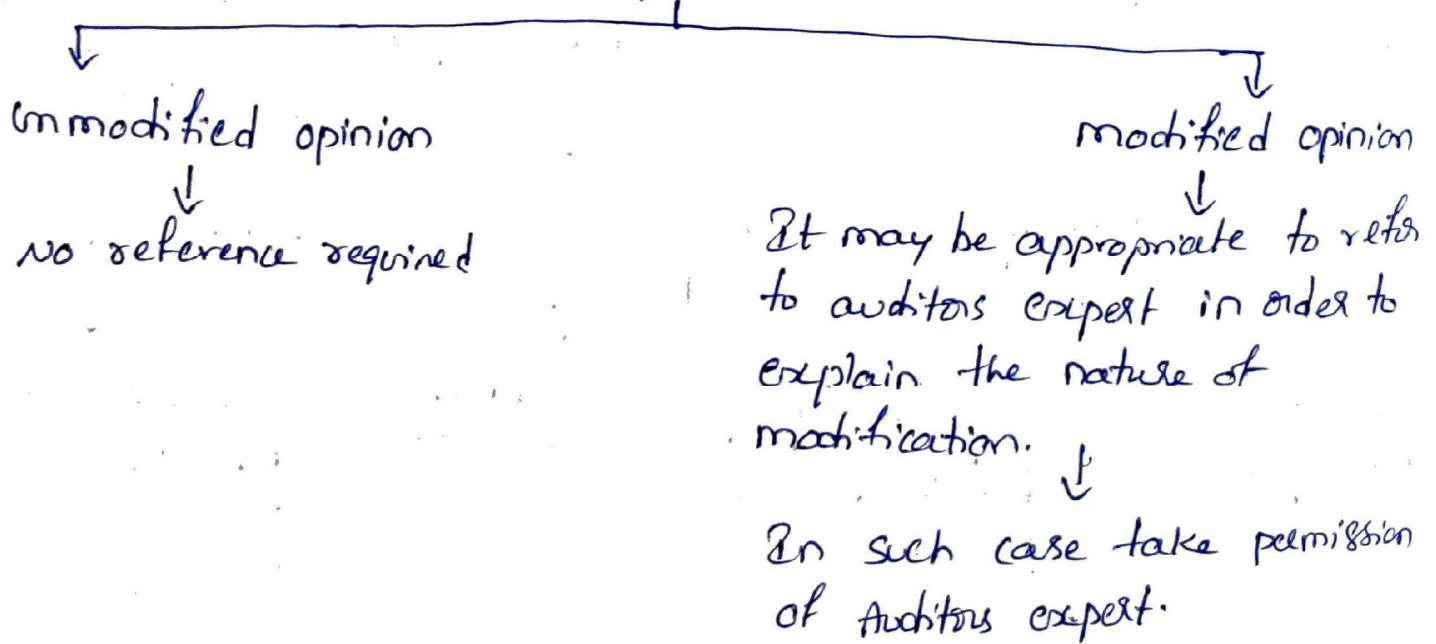 unmodified opinion
↓
No reference required
modified opinion
↓
It may be appropriate to refer
to auditors expert in order to
explain the nature of
modification.
↓
In such case take permission
of Auditors expert.